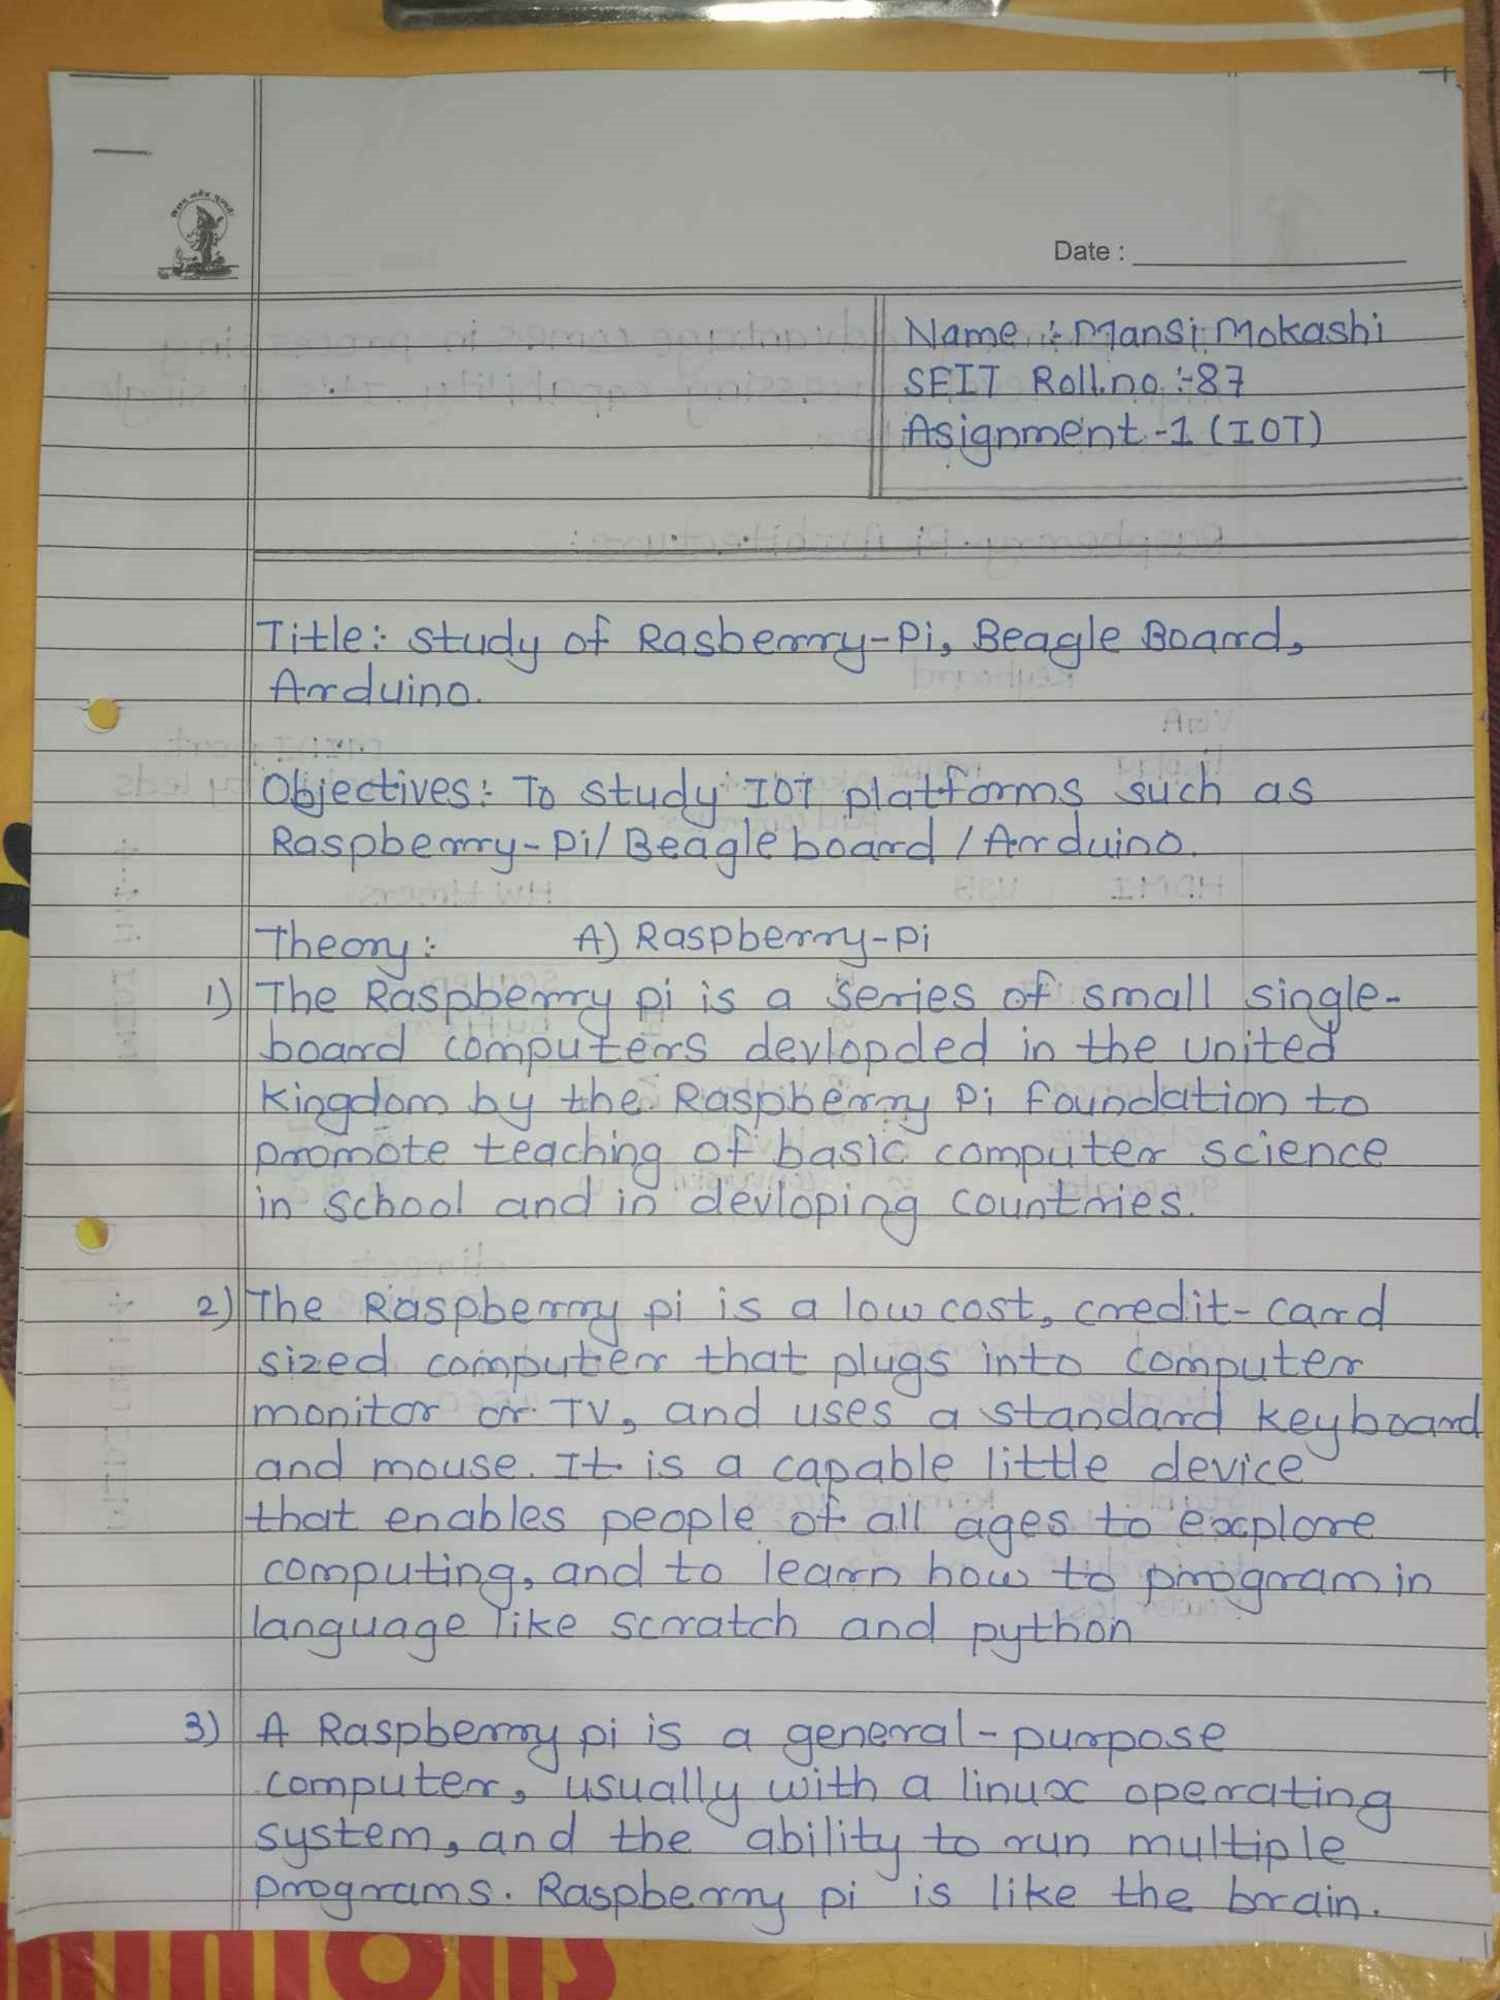 Date :
Name :- Mansi Mokashi
SEIT Roll.no :-87
Asignment -1 (IOT)
Title:- Study of Rasberry-Pi, Beagle Board,
Arduino.
Objectives:- To study IOT platforms such as
Raspberry-Pi/ Beagle board / Arduino.
Theory:- A) Raspberry-Pi
1) The Raspberry pi is a series of small single-
board computers devlopded in the United
Kingdom by the Raspberry Pi foundation to
promote teaching of basic computer science
in school and in devloping countries.
2) The Raspberry pi is a low cost, credit-card
sized computer that plugs into computer
monitor or TV, and uses a standard keyboard
and mouse. It is a capable little device
that enables people of all ages to explore
computing, and to learn how to program in
language like scratch and python
3) A Raspberry pi is a general-purpose
computer, usually with a linux operating
system, and the ability to run multiple
programs. Raspberry pi is like the brain.